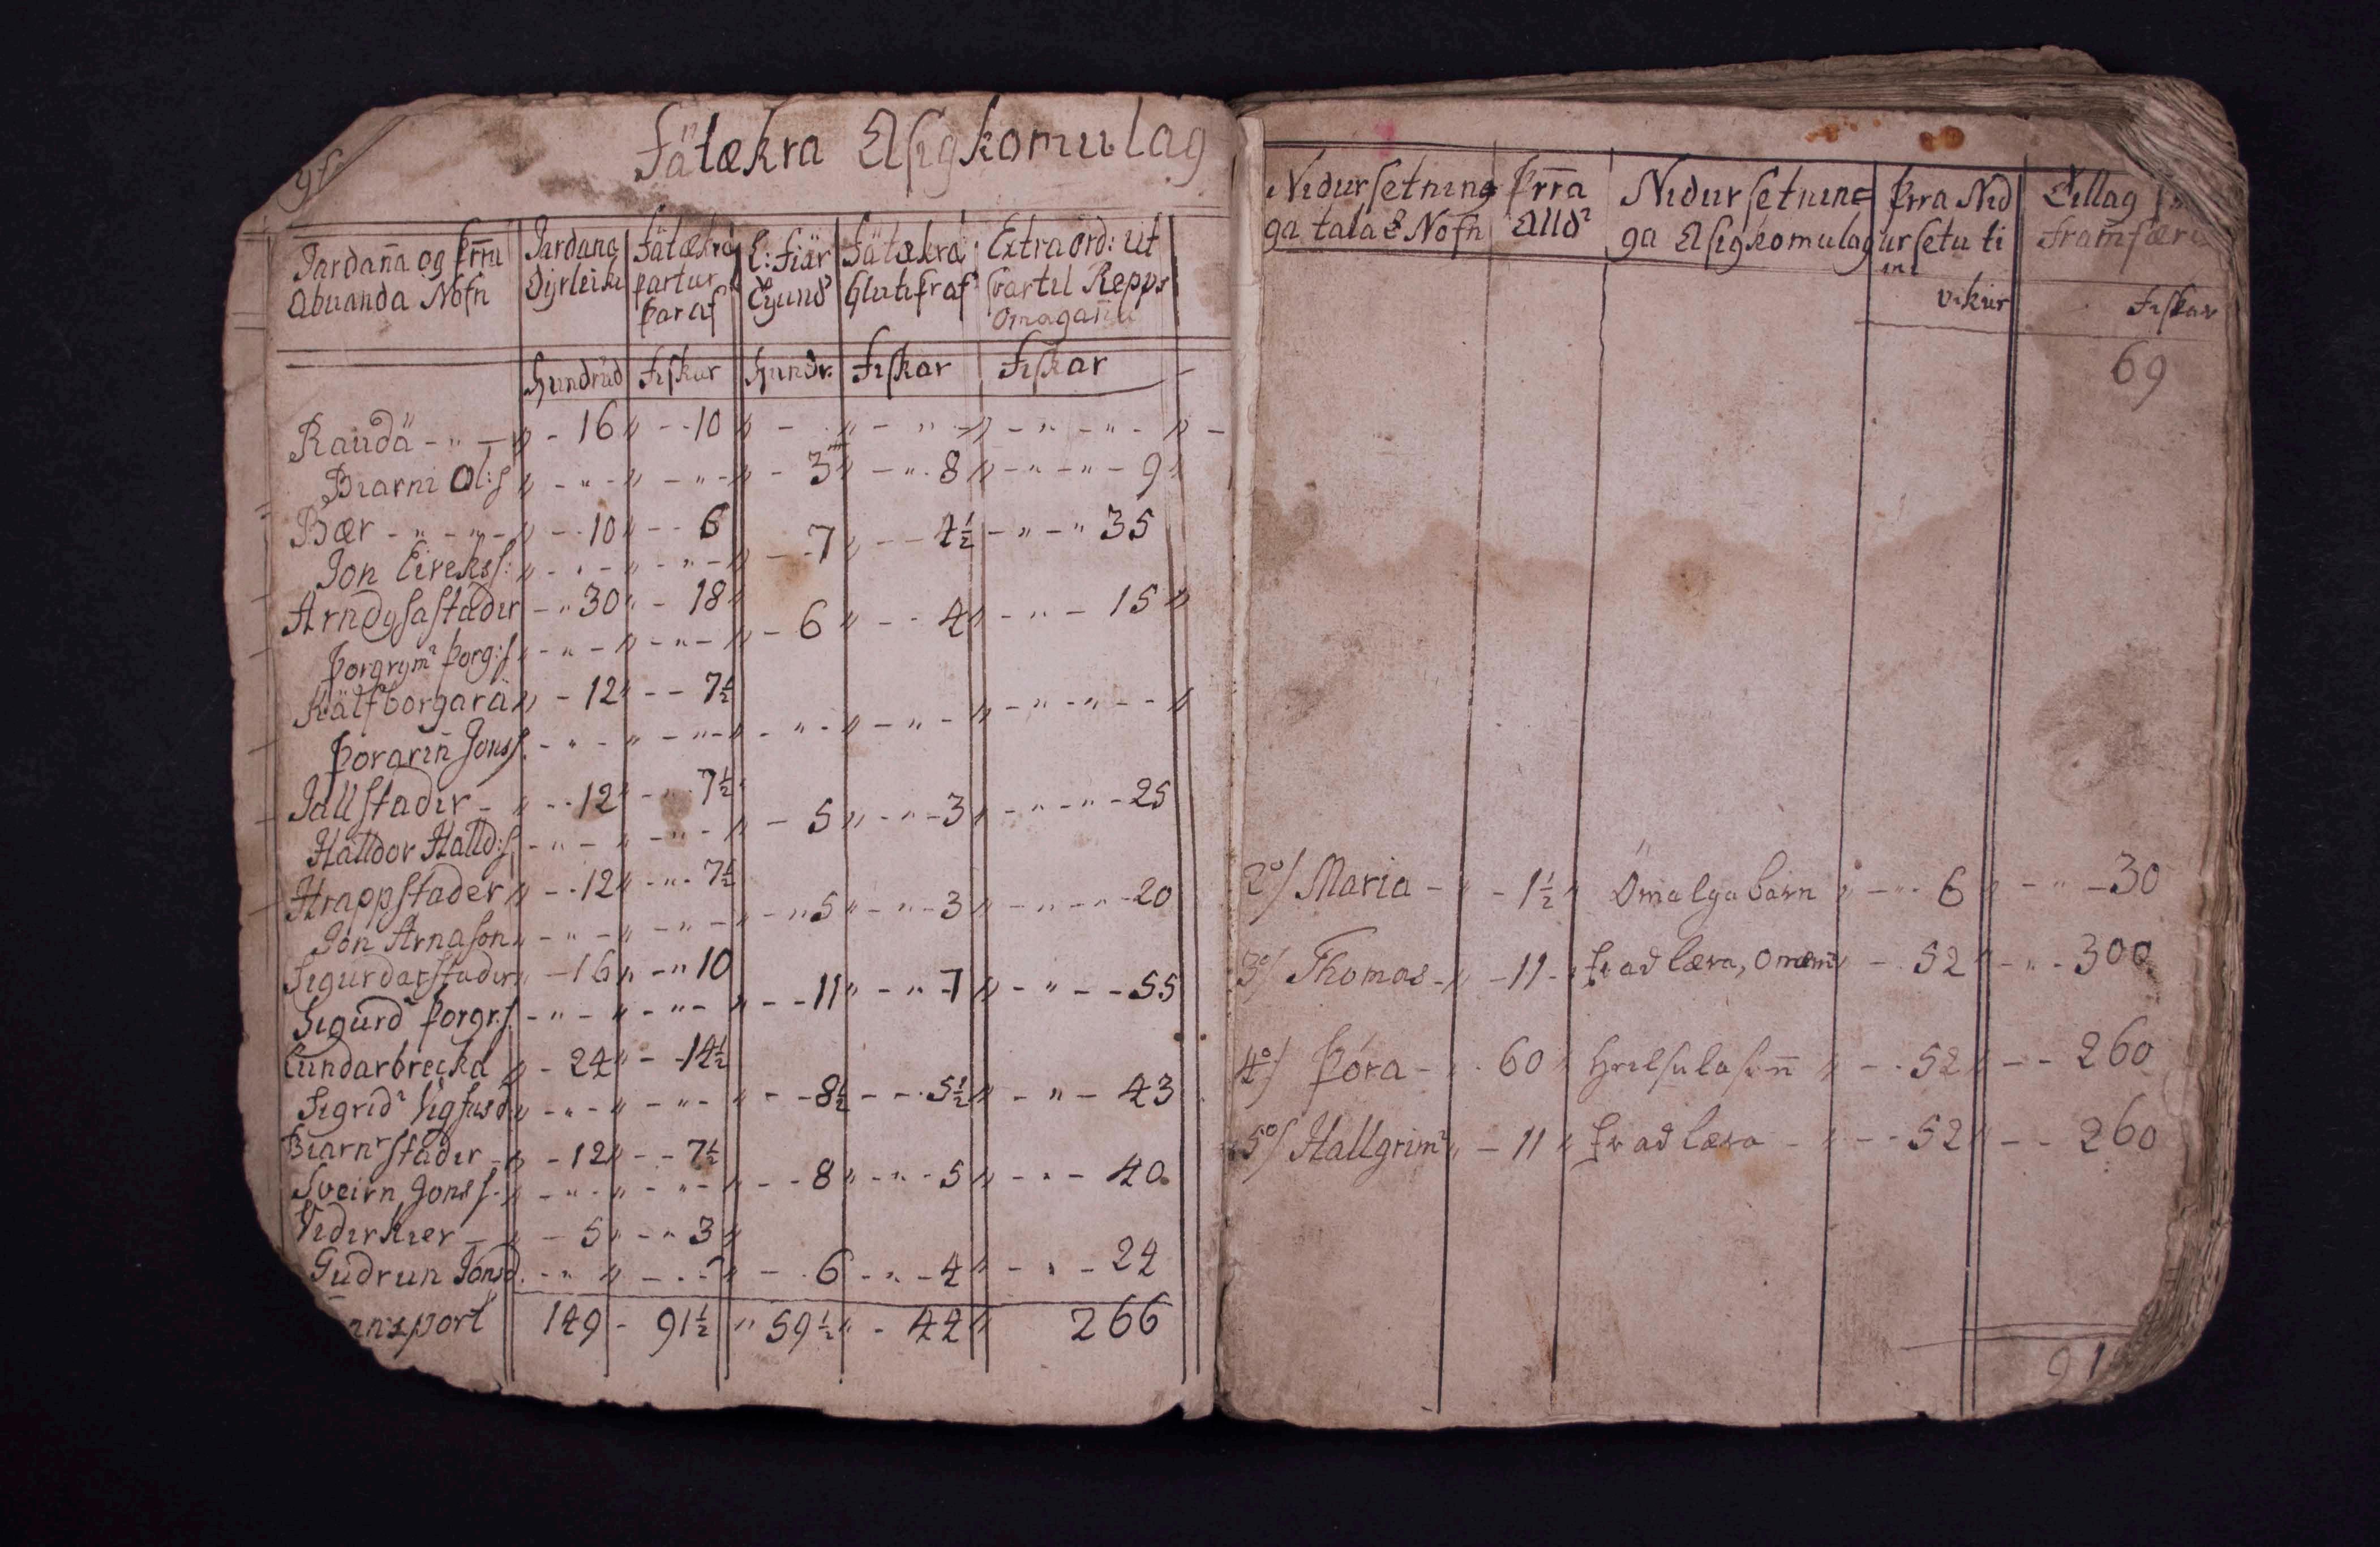 Fätækra Asigkomulag
Jardan̄a og þr̄ra Abuanda Nöfn
Jardana Dyrleiki
Fätækra partur þar af
L: Fiär Tyund
Fätækra Hluti þraf
Extraord: Ut svar til Repps Omagan̄a
Hundrud Fiskar Hundr. Fiskar Fiskar
Raudä - 16 - 10
Biarni Ol:s - 3 - 8 - 9
Bær - 10 - 6
Jon Eirekss: - 7 - 4½ - 35
Arndysastader - 30 - 18
Þorgrymr Þorg:s - 6 - 4 - 15
Kälfborgarä - 12 - 7½
Þorarin̄ Jonss
Jallstader - 12 - 7½
Halldor Halld:s - 5 - 3 - 25
Hrappstader - 12 - 7½
Jon Arnason - 5 - 3 - 20
Sigurdarstader - 16 - 10
Sigurdr Þorgr:s - 11 - 7 - 55
Lundarbrecka - 24 - 14½
Sigridr Vigfusd - 8½ - 5½ - 43
Biarnrstader - 12 - 7½
Sveirn Jonss - 8 - 5 - 40
Vidirkier - 5 - 3
Gudrun Jonsd. - 6 - 4 - 24
nnsport 149 - 91½ 59½ - 44 266
Nidursetning ga tala & Nöfn
Þr̄ra Alldr
Nidursetning ga Asigkomulag
Þrra Nid ursetu ti mi
Tillag
framfæri
vikur Fiskar
69
2°/ Maria - 1½ Omalga barn - 6 - 30
3°/ Thomas - 11 - fr ad læra, - 52 - 300
4°/ Þóra - 60 - 52 - 260
5°/ Hallgrimr - 11 fr ad læra - 52 - 260
91